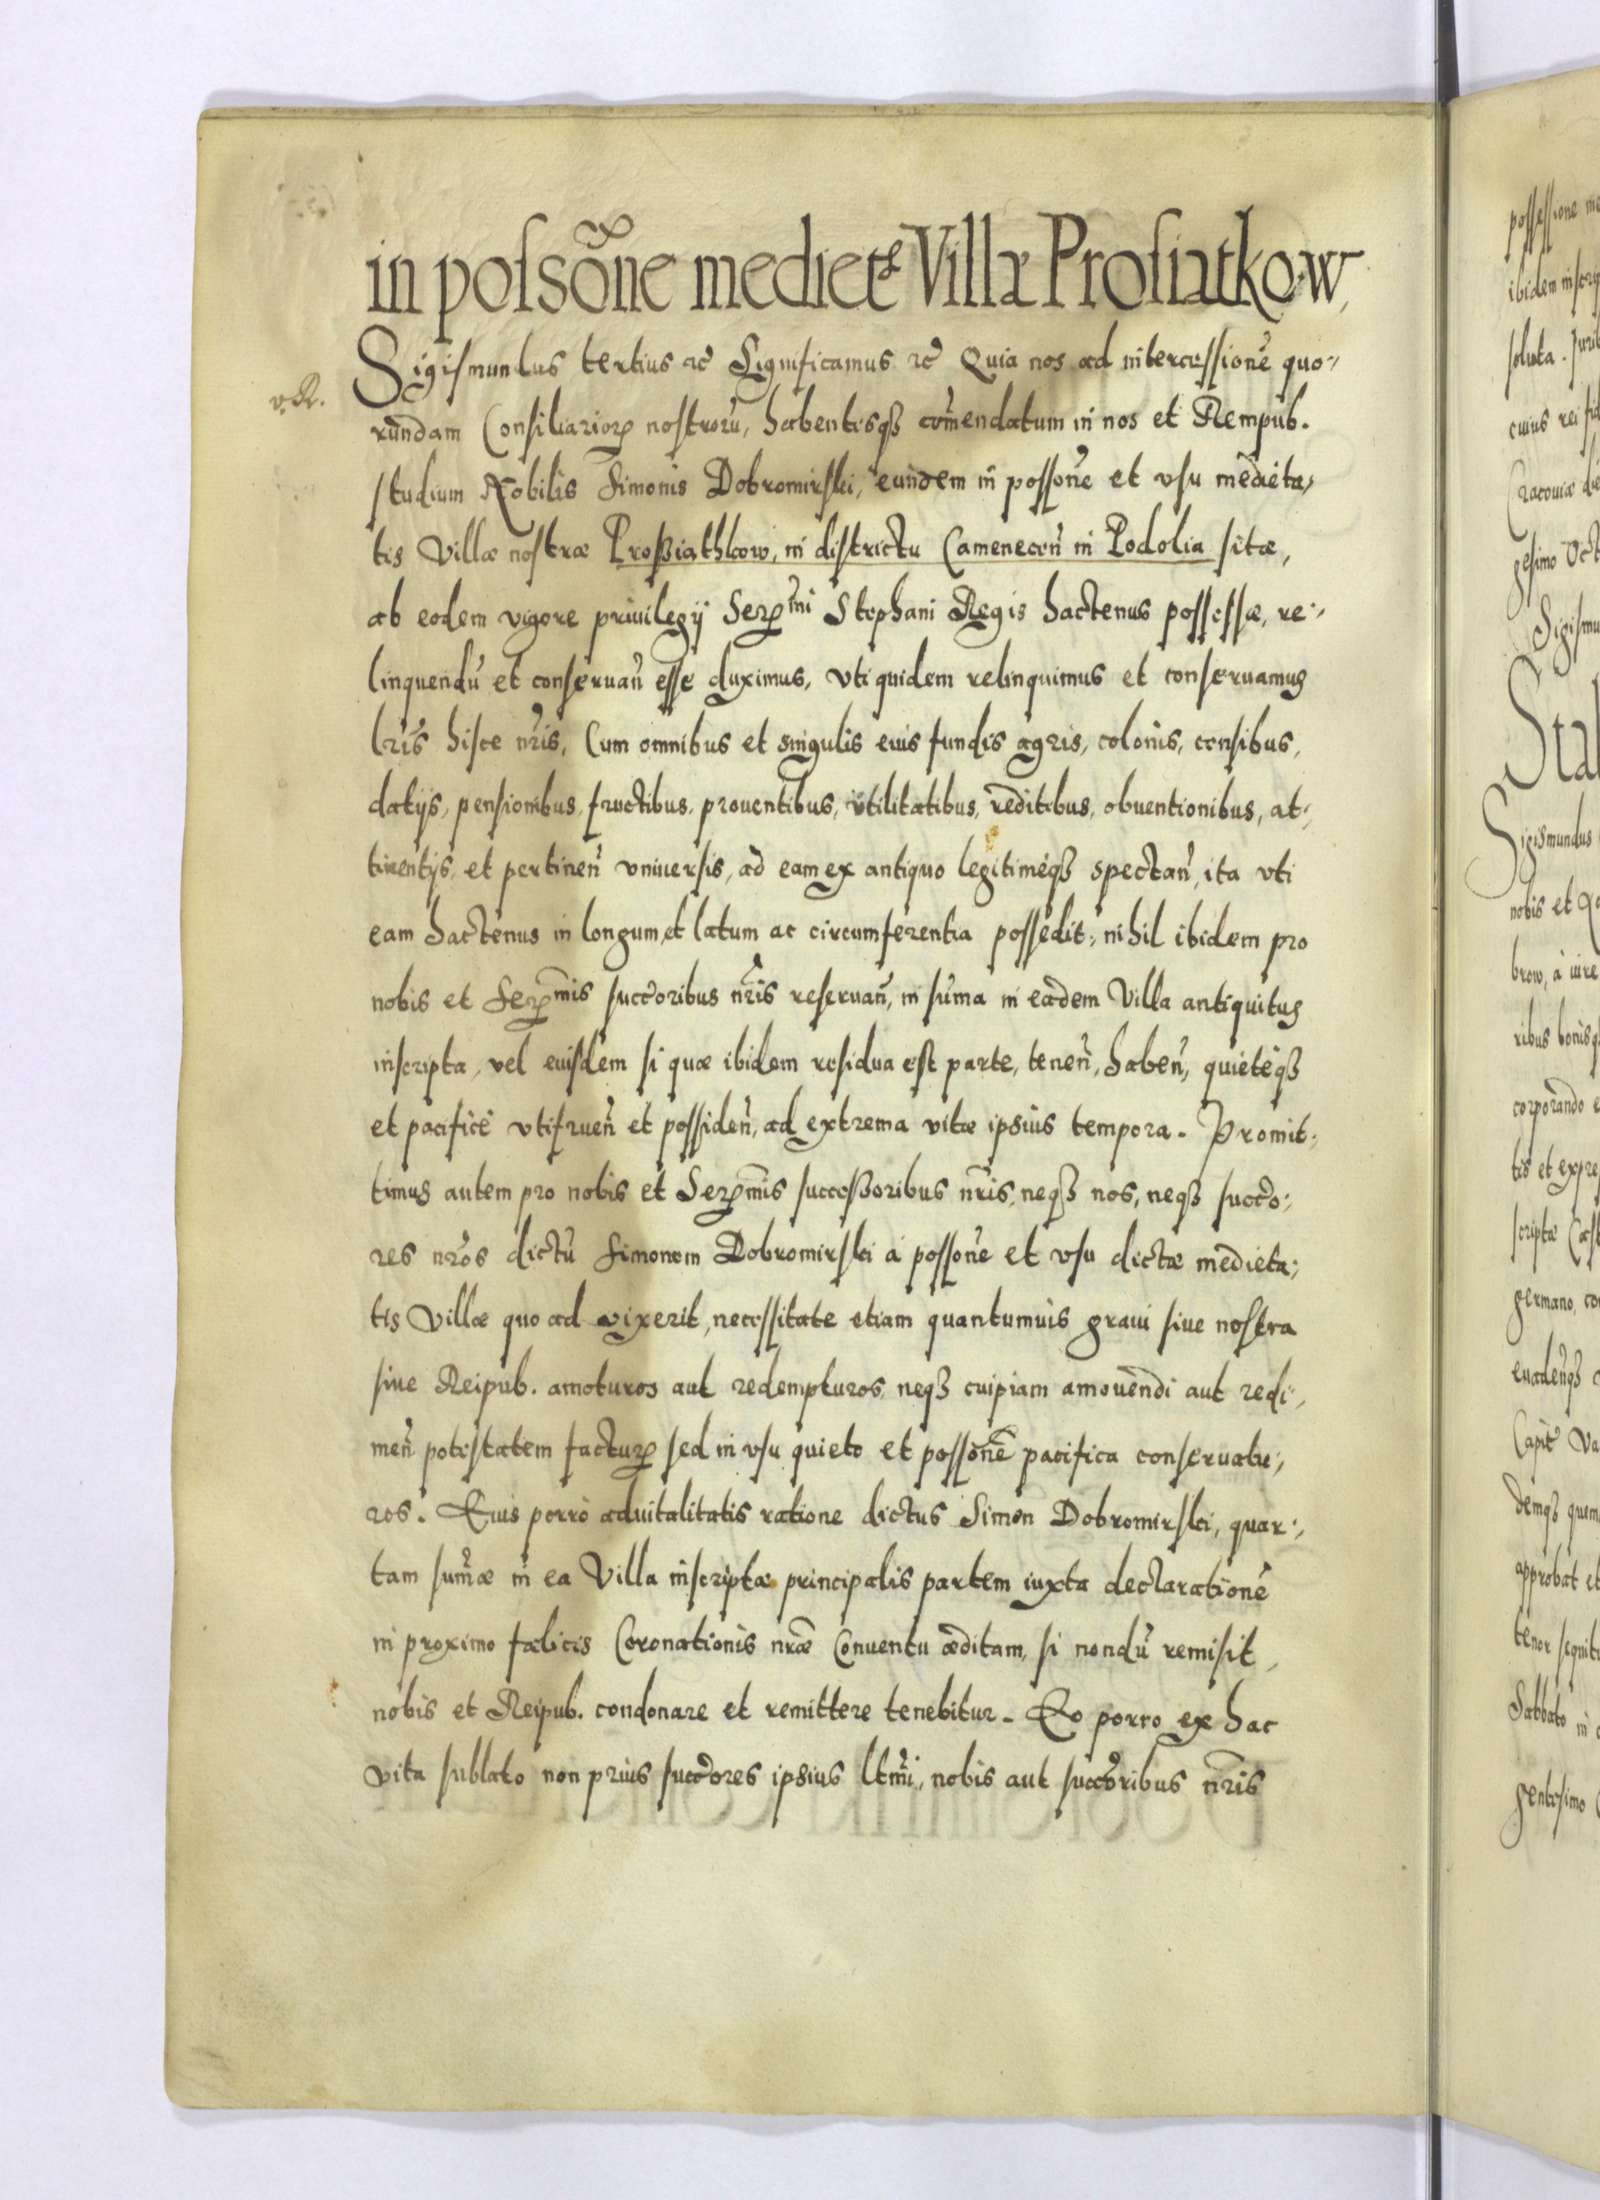 in possõne mediets Villæ Prosiatkow,
Sigismundus tertius etc̃ Significamus etc̃ Quia nos ad intercessionẽ quo-
v. R.
rundam Consiliarior. nostrorũ, habentisq3 com̃endatum in nos et Rempub.
studium Nobilis Simonis Dobromirski, eundem in possoñe et vsu medieta-
tis Villæ nostræ Prossiathkow, in districtu Camenecen̄ in Podolia sitæ,
ab eodem vigore priuilegij Serᵐⁱ Stephani Regis hactenus possessæ, re-
linquendũ et conseruan̄ esse duximus, vti quidem relinquimus et conseruamus
lr̃is hisce nr̃is, Cum omnibus et singulis eius fundis agris, colonis, censibus,
datijs, pensionibus, fructibus, prouentibus, vtilitatibus, reditibus, obuentionibus, at-
tinentijs, et pertinen̄ vniuersis, ad eam ex antiquo legitimeq3 spectan̄, ita vti
eam hactenus in longum, et latum ac circumferentia possedit, nihil ibidem pro
nobis et Serᵐⁱˢ succoribus nr̃is reseruan̄, in sum̃a in eadem Villa antiquitus
inscripta, vel eiusdem si quæ ibidem residua est parte, tenen̄, haben̄, quieteq3
et pacifice vtifruen̄ et possiden̄, ad extrema vitæ ipsius tempora. Promit-
timus autem pro nobis et Serᵐⁱˢ successoribus nr̃is, neq3 nos, neq3 succo-
res nr̃os dictũ Simonem Dobromirski à possoñe et vsu dictæ medieta-
tis Villæ quo ad vixerit, necessitate etiam quantumuis graui siue nostra
siue Reipub. amoturos aut redempturos, neq3 cuipiam amouendi aut redi-
men̄ potestatem factur. sed in vsu quieto et possonẽ pacifica conseruatu-
ros. Eius porrò aduitalitatis ratione dictus Simon Dobromirski, quar-
tam sum̃æ in ea Villa inscriptæ principalis partem iuxta declarationẽ
in proximo fælicis Coronationis nr̃æ Conuentu æditam, si nondũ remisit,
nobis et Reipub. condonare et remittere tenebitur. Eo porro ex hac
vita sublato non prius succores ipsius ltm̃i, nobis aut succoribus nr̃is